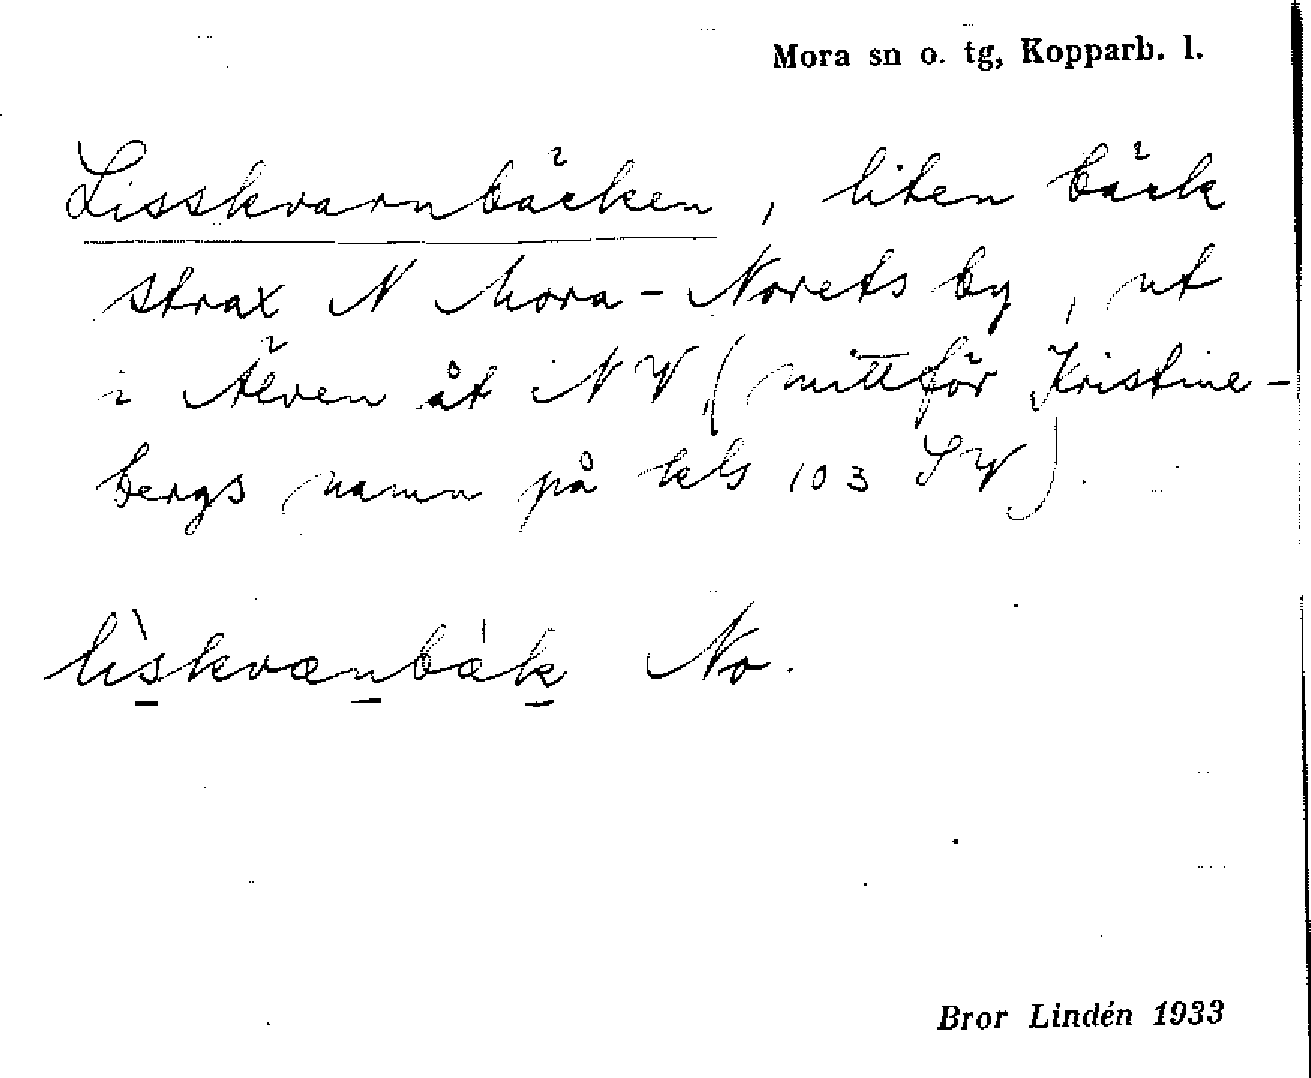 Mora sn o. tg, Kopparb. l.
Lisskvarnbäcken, liten bäck
strax N Mora-Norets by, ut
i Älven åt NV (mittför Kristine-
bergs namn på kbl 103 SV).
lìskvænbæ̍k No.
Bror Lindén 1933